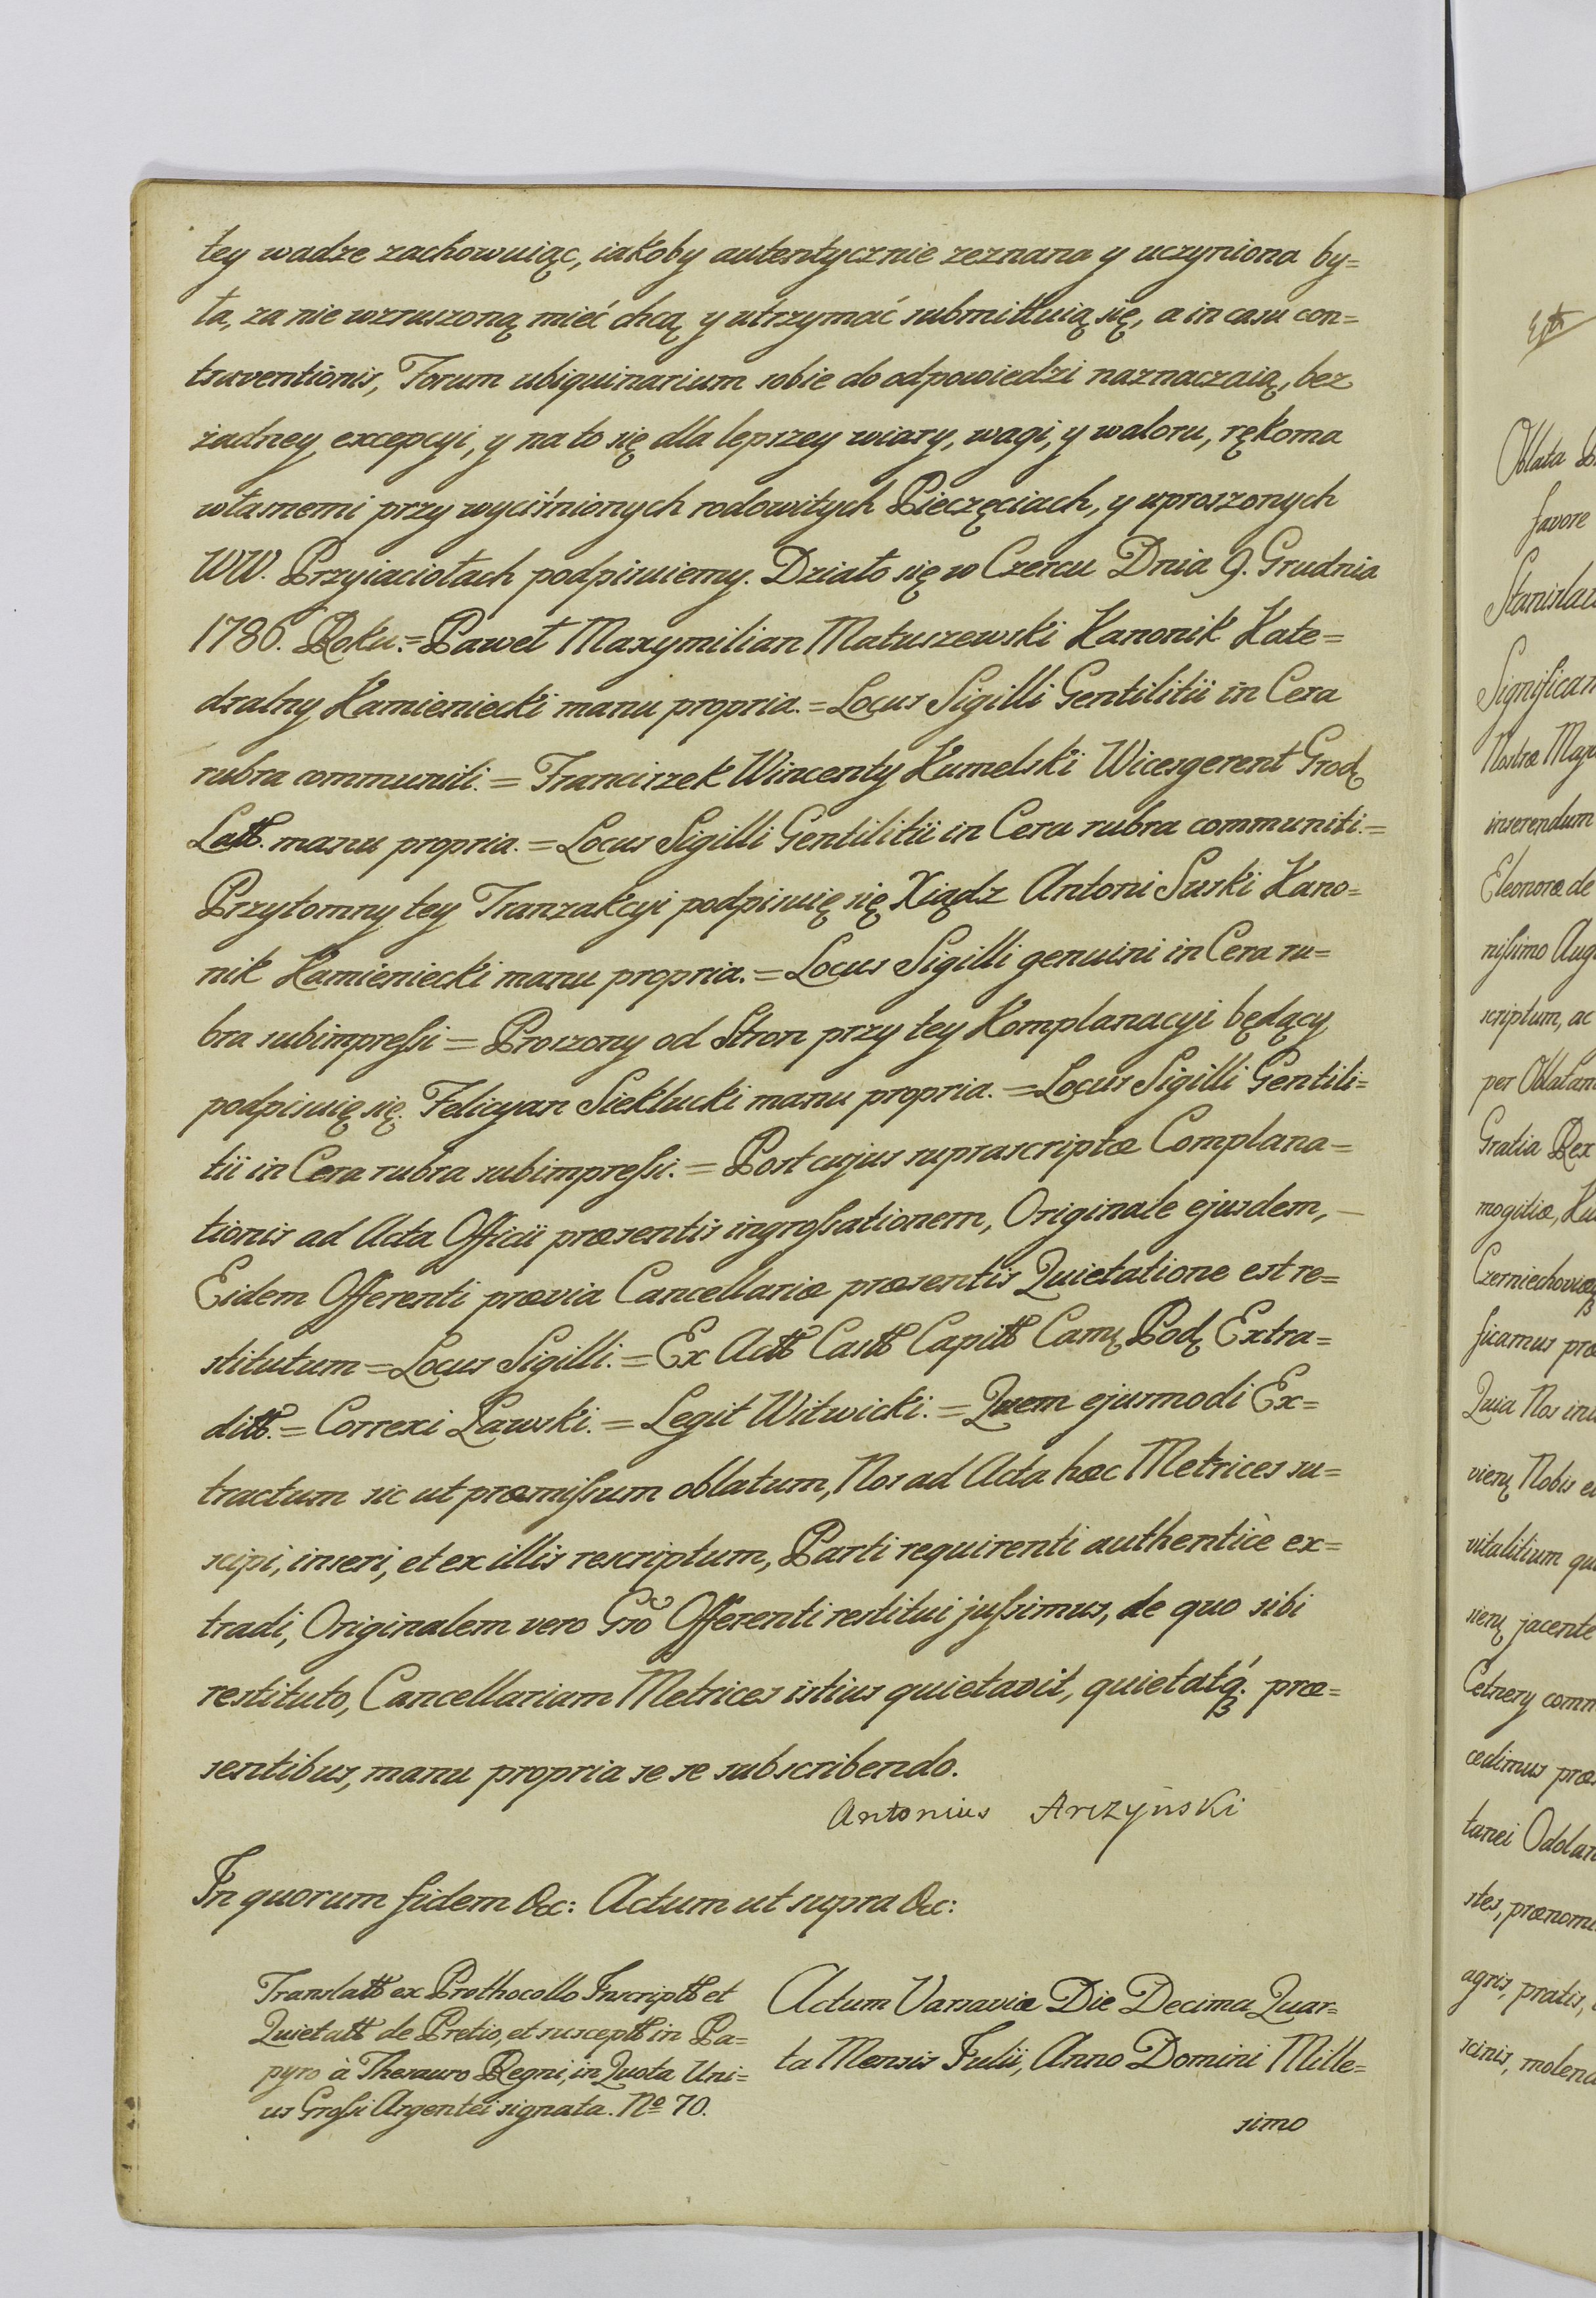 tey wadze zachowuiąc, iakoby autentycznie zeznana y uczyniona by=
ła, za nie wzruszoną mieć chcą y utrzymać submittuią się, a in casu con=
traventionis, Forum ubiquinarium sobie do odpowiedzi naznaczaią, bez
żadney excepcyi, y na to się dla lepszey wiary, wagi, y waloru, rękoma
własnemi przy wyciśnionych rodowitych Pieczęciach, y uproszonych
WW. Przyiaciołach podpisuiemy. Działo się w Czercu Dnia 9. Grudnia
1786. Roku.= Paweł Maxymilian Matuszewski Kanonik Kate=
dralny Kamieniecki manu propria.= Locus Sigilli Gentilitii in Cera
rubra communiti.= Franciszek Wincenty Kumelski Wicesgerent Grod
Latt. manu propria.= Locus Sigilli Gentilitii in Cera rubra communiti.=
Przytomny tey Tranzakcyi podpisuię się Xiądz Antoni Surki Kano=
nik Kamieniecki manu propria.= Locus Sigilli genuini in Cera ru=
bra subimpressi = Proszony od Stron przy tey Komplanacyi będący
podpisuię się. Felicyan Sieklucki manu propria.= Locus Sigilli Gentili=
tii in Cera rubra subimpressi.= Post cujus suprascriptæ Complana=
tionis ad Acta Officii præsentis ingrossationem, Originale ejusdem, —
Eidem Offerenti prævia Cancellariæ præsentis Quietatione est re=
stitutum = Locus Sigilli.= Ex Actt Castt Capitt Cam Pod Extra=
ditt.= Correxi Ławski.= Legit Witwicki.= Quem ejusmodi Ex=
tractum sic ut præmissum oblatum, Nos ad Acta hæc Metrices su=
scipi, inseri, et ex illis rescriptum, Parti requirenti authenticè ex=
tradi, Originalem vero Gro Offerenti restitui jussimus, de quo sibi
restituto, Cancellariam Metrices istius quietavit, quietatq. præ=
sentibus, manu propria se se subscribendo.
Antonius Arczyński
In quorum fidem &c: Actum ut supra &c:
Translatt ex Prothocollo Inscriptt et
Quietatt de Pretio, et susceptt in Pa=
pyro à Thesauro Regni, in Quota Uni=
us Grossi Argentei signata. No 70.
Actum Varsaviæ Die Decima Quar=
ta Mensis Julii, Anno Domini Mille=
simo
Oblata
favore
Nostræ
inserendum
Eleonoræ de
nissimo
scriptum, ac
per
Gratia Rex
mogitiæ,
ficamus
Quia Nos
Nobis
vitalitium
Cetnery
cedimus
tanei
stes,
agris, pratis,